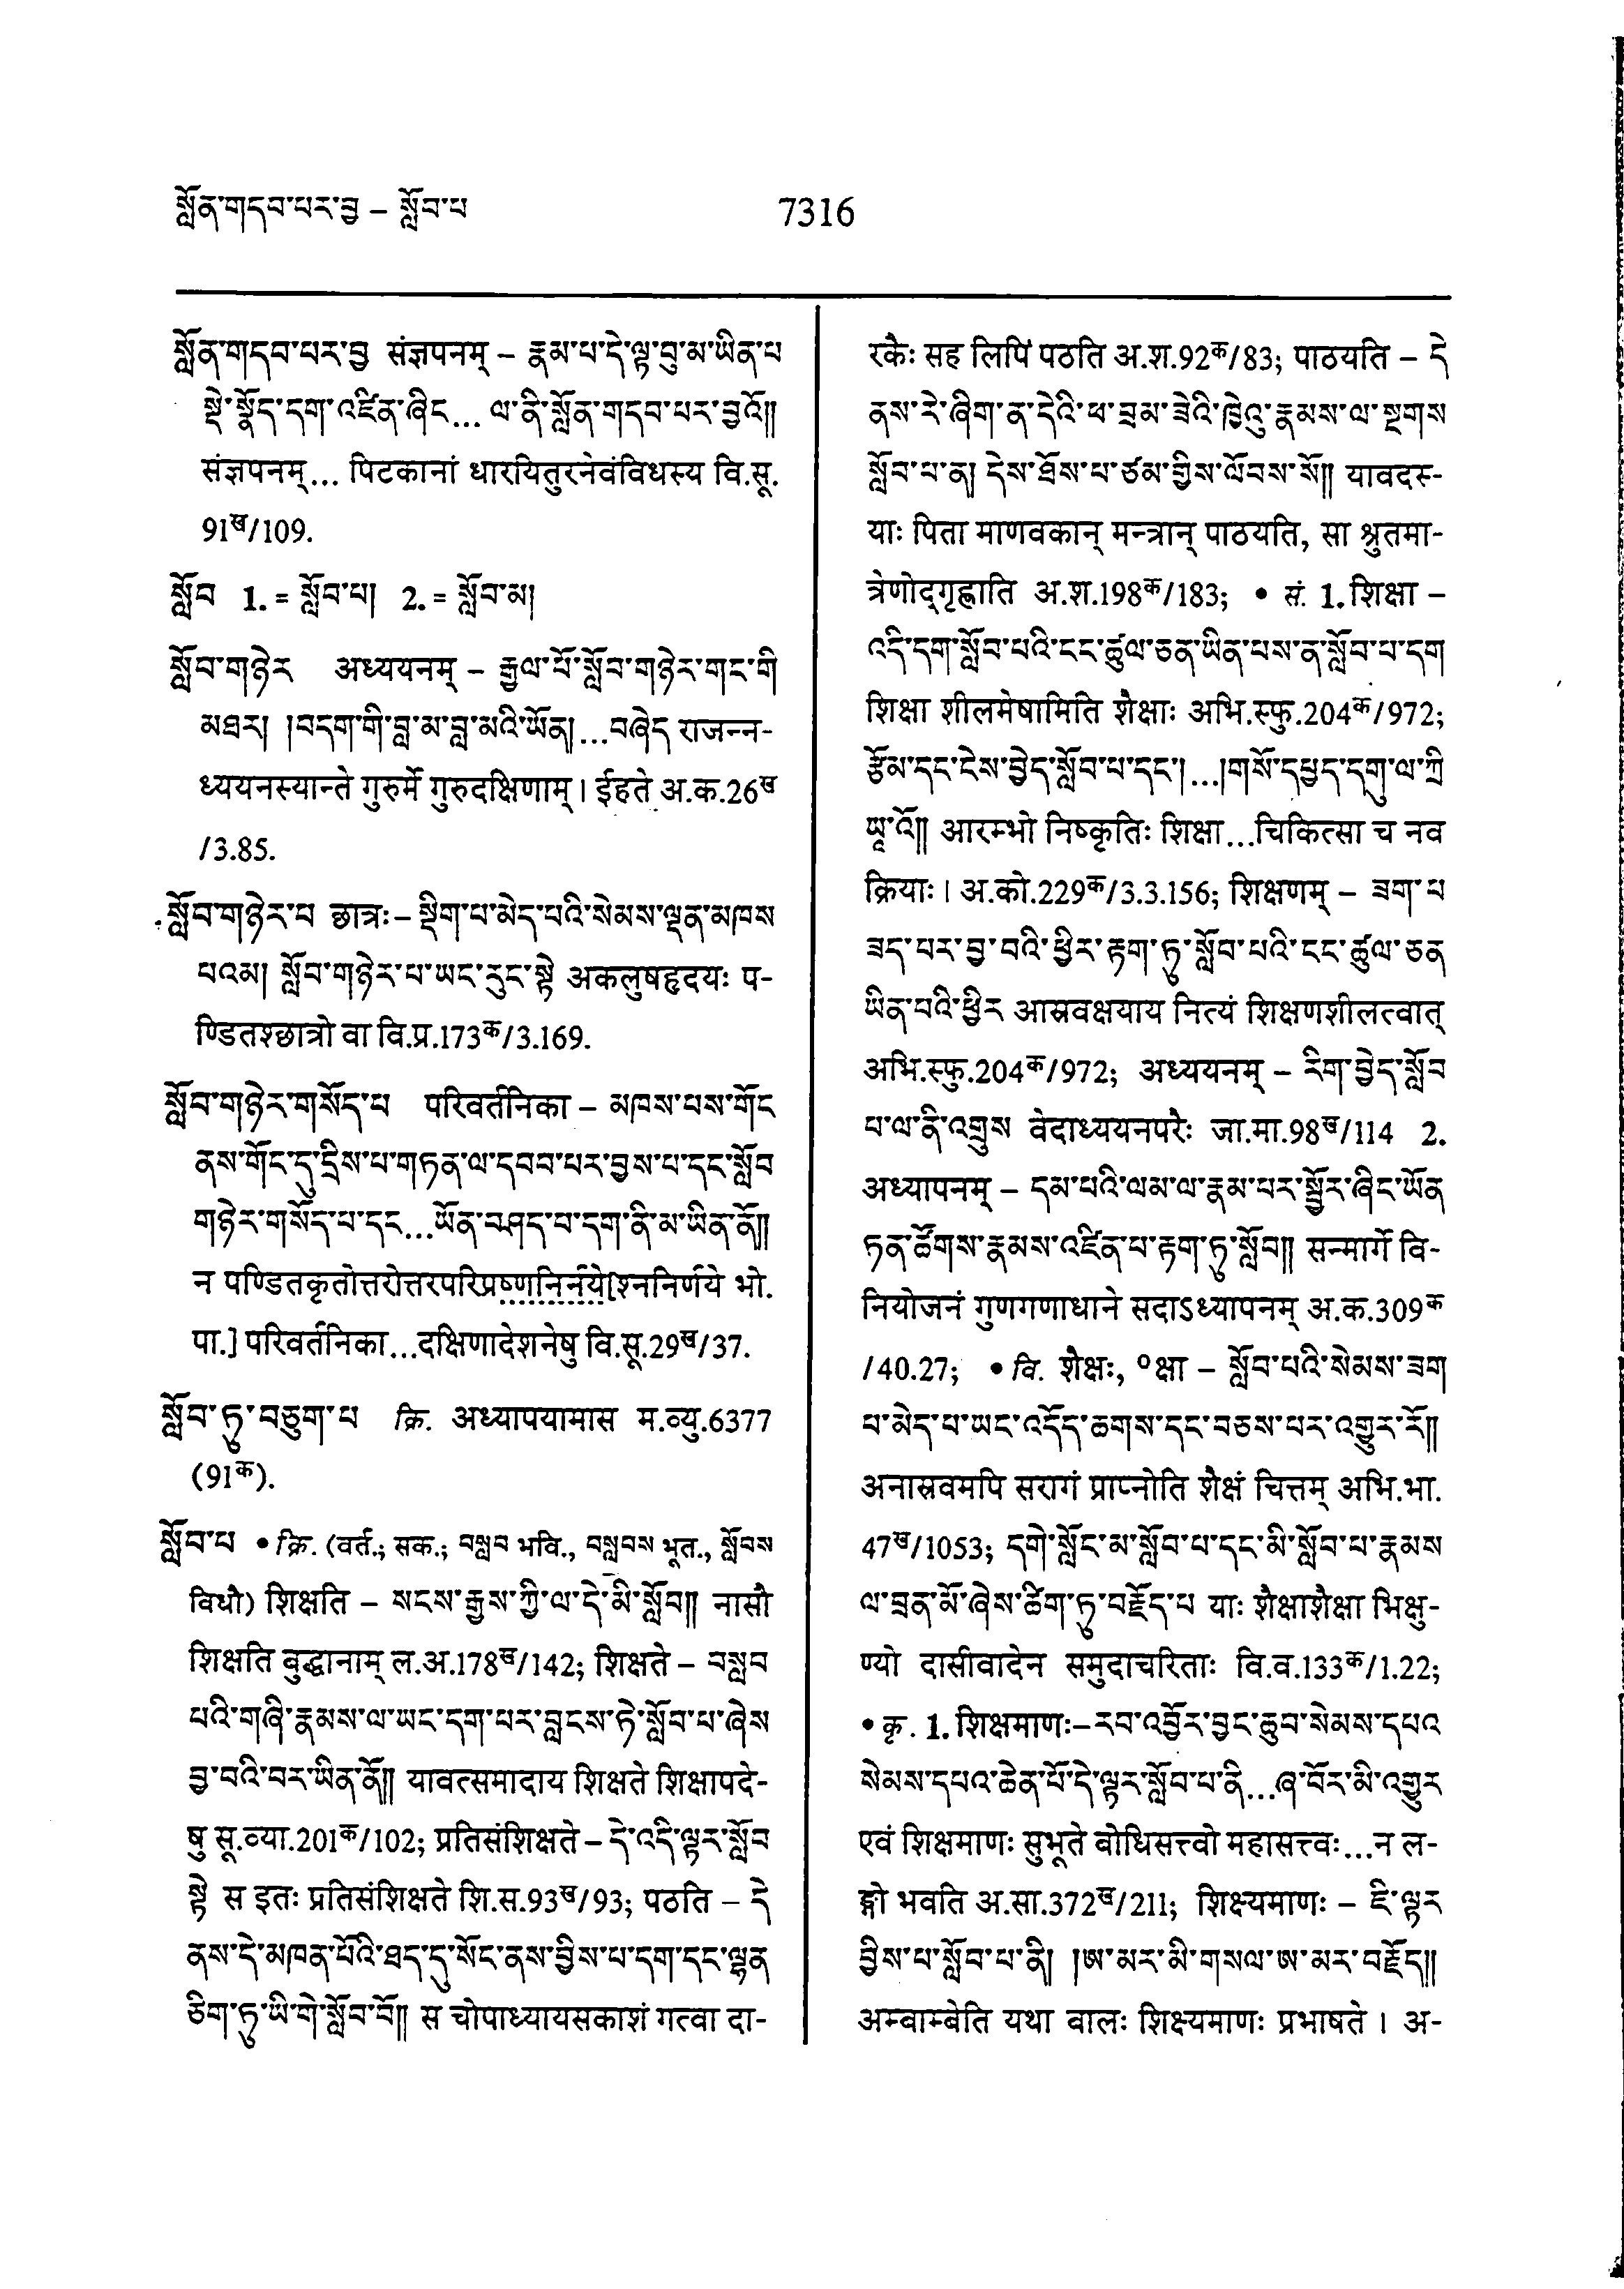 སློན་གདབ་པར་བྱ – སློབ་པ
7316
སློན་གདབ་པར་བྱ संज्ञपनम् – རྣམ་པ་དེ་ལྟ་བུ་མ་ཡིན་པ
སྡེ་སྣོད་དག་འཛིན་ཞིང... ལ་ནི་སློན་གདབ་པར་བྱའོ༎
संज्ञपनम्... पिटकानां धारयितुरनेवंविधस्य वि.सू.
91ख/109.
སློབ 1. = སློབ་པ། 2. = སློབ་མ།
སློབ་གཉེར अध्ययनम् – རྒྱལ་པོ་སློབ་གཉེར་གང་གི
མཐར། །བདག་གི་བླ་མ་བླ་མའི་ཡོན།...བཞེད राजन्न-
ध्ययनस्यान्ते गुरुर्मे गुरुदक्षिणाम् । ईहते अ.क.26ख
/3.85.
སློབ་གཉེར་པ छात्रः – སྡིག་པ་མེད་པའི་སེམས་ལྡན་མཁས
པའམ། སློབ་གཉེར་པ་ཡང་རུང་སྟེ अकलुषहृदयः प-
ण्डितश्छात्रो वा वि.प्र.173क/3.169.
སློབ་གཉེར་གསོད་པ परिवर्तनिका – མཁས་པས་གོང
ནས་གོང་དུ་དྲིས་པ་གཏན་ལ་དབབ་པར་བྱས་པ་དང་སློབ
གཉེར་གསོད་པ་དང...ཡོན་བཤད་པ་དག་ནི་མ་ཡིན་ནོ༎
न पण्डितकृतोत्तरोत्तरपरिप्रष्णनिर्नये[श्ननिर्णये भो.
पा.] परिवर्तनिका...दक्षिणादेशनेषु वि.सू.29ख/37.
སློབ་ཏུ་བཅུག་པ क्रि. अध्यापयामास म.व्यु.6377
(91क).
སློབ་པ • क्रि. (वर्त.; सक.; བསླབ भवि., བསླབས भूत., སློབས
विधौ) शिक्षति – སངས་རྒྱས་ཀྱི་ལ་དེ་མི་སློབ༎ नासौ
शिक्षति बुद्धानाम् ल.अ.178ख/142; शिक्षते – བསླབ
པའི་གཞི་རྣམས་ལ་ཡང་དག་པར་བླངས་ཏེ་སློབ་པ་ཞེས
བྱ་བའི་བར་ཡིན་ནོ༎ यावत्समादाय शिक्षते शिक्षापदे-
षु सू.व्या.201क/102; प्रतिसंशिक्षते – དེ་འདི་ལྟར་སློབ
སྟེ स इतः प्रतिसंशिक्षते शि.स.93ख/93; पठति – དེ
ནས་དེ་མཁན་པོའི་ཐད་དུ་སོང་ནས་བྱིས་པ་དག་དང་ལྷན
ཅིག་ཏུ་ཡི་གེ་སློབ་བོ༎ स चोपाध्यायसकाशं गत्वा दा-
रकैः सह लिपिं पठति अ.श.92क/83; पाठयति – དེ
ནས་རེ་ཞིག་ན་དེའི་ཕ་བྲམ་ཟེའི་ཁྱེའུ་རྣམས་ལ་སྔགས
སློབ་པ་ན། དེས་ཐོས་པ་ཙམ་གྱིས་ལོབས་སོ༎ यावदस्-
याः पिता माणवकान् मन्त्रान् पाठयति, सा श्रुतमा-
त्रेणोद्गृह्णाति अ.श.198क/183; • सं. 1. शिक्षा –
འདི་དག་སློབ་པའི་ངང་ཚུལ་ཅན་ཡིན་པས་ན་སློབ་པ་དག
शिक्षा शीलमेषामिति शैक्षाः अभि.स्फु.204क/972;
རྩོམ་དང་ངེས་བྱེད་སློབ་པ་དང་།...།གསོ་དཔྱད་དགུ་ལ་ཀྲི
ཡཱ་འོ༎ आरम्भो निष्कृतिः शिक्षा...चिकित्सा च नव
क्रियाः । अ.को.229क/3.3.156; शिक्षणम् – ཟག་པ
ཟད་པར་བྱ་བའི་ཕྱིར་རྟག་ཏུ་སློབ་པའི་ངང་ཚུལ་ཅན
ཡིན་པའི་ཕྱིར आस्रवक्षयाय नित्यं शिक्षणशीलत्वात्
अभि.स्फु.204क/972; अध्ययनम् – རིག་བྱེད་སློབ
པ་ལ་ནི་འགྲུས वेदाध्ययनपरैः जा.मा.98ख/114 2.
अध्यापनम् – དམ་པའི་ལམ་ལ་རྣམ་པར་སྦྱོར་ཞིང་ཡོན
ཏན་ཚོགས་རྣམས་འཛིན་པ་རྟག་ཏུ་སློབ༎ सन्मार्गे वि-
नियोजनं गुणगणाधाने सदाऽध्यापनम् अ.क.309क
/40.27; • वि. शैक्षः, ०क्षा – སློབ་པའི་སེམས་ཟག
པ་མེད་པ་ཡང་འདོད་ཆགས་དང་བཅས་པར་འགྱུར་རོ༎
अनास्रवमपि सरागं प्राप्नोति शैक्षं चित्तम् अभि.भा.
47ख/1053; དགེ་སློང་མ་སློབ་པ་དང་མི་སློབ་པ་རྣམས
ལ་བྲན་མོ་ཞེས་ཚིག་ཏུ་བརྗོད་པ याः शैक्षाशैक्षा भिक्षु-
ण्यो दासीवादेन समुदाचरिताः वि.व.133क/1.22;
• कृ. 1. शिक्षमाणः – རབ་འབྱོར་བྱང་ཆུབ་སེམས་དཔའ
སེམས་དཔའ་ཆེན་པོ་དེ་ལྟར་སློབ་པ་ནི...ཞ་བོར་མི་འགྱུར
एवं शिक्षमाणः सुभूते बोधिसत्त्वो महासत्त्वः...न ल-
ङ्गो भवति अ.सा.372ख/211; शिक्ष्यमाणः – ཇི་ལྟར
བྱིས་པ་སློབ་པ་ནི། །ཨ་མར་མི་གསལ་ཨ་མར་བརྗོད༎
अम्बाम्बेति यथा बालः शिक्ष्यमाणः प्रभाषते । अ-